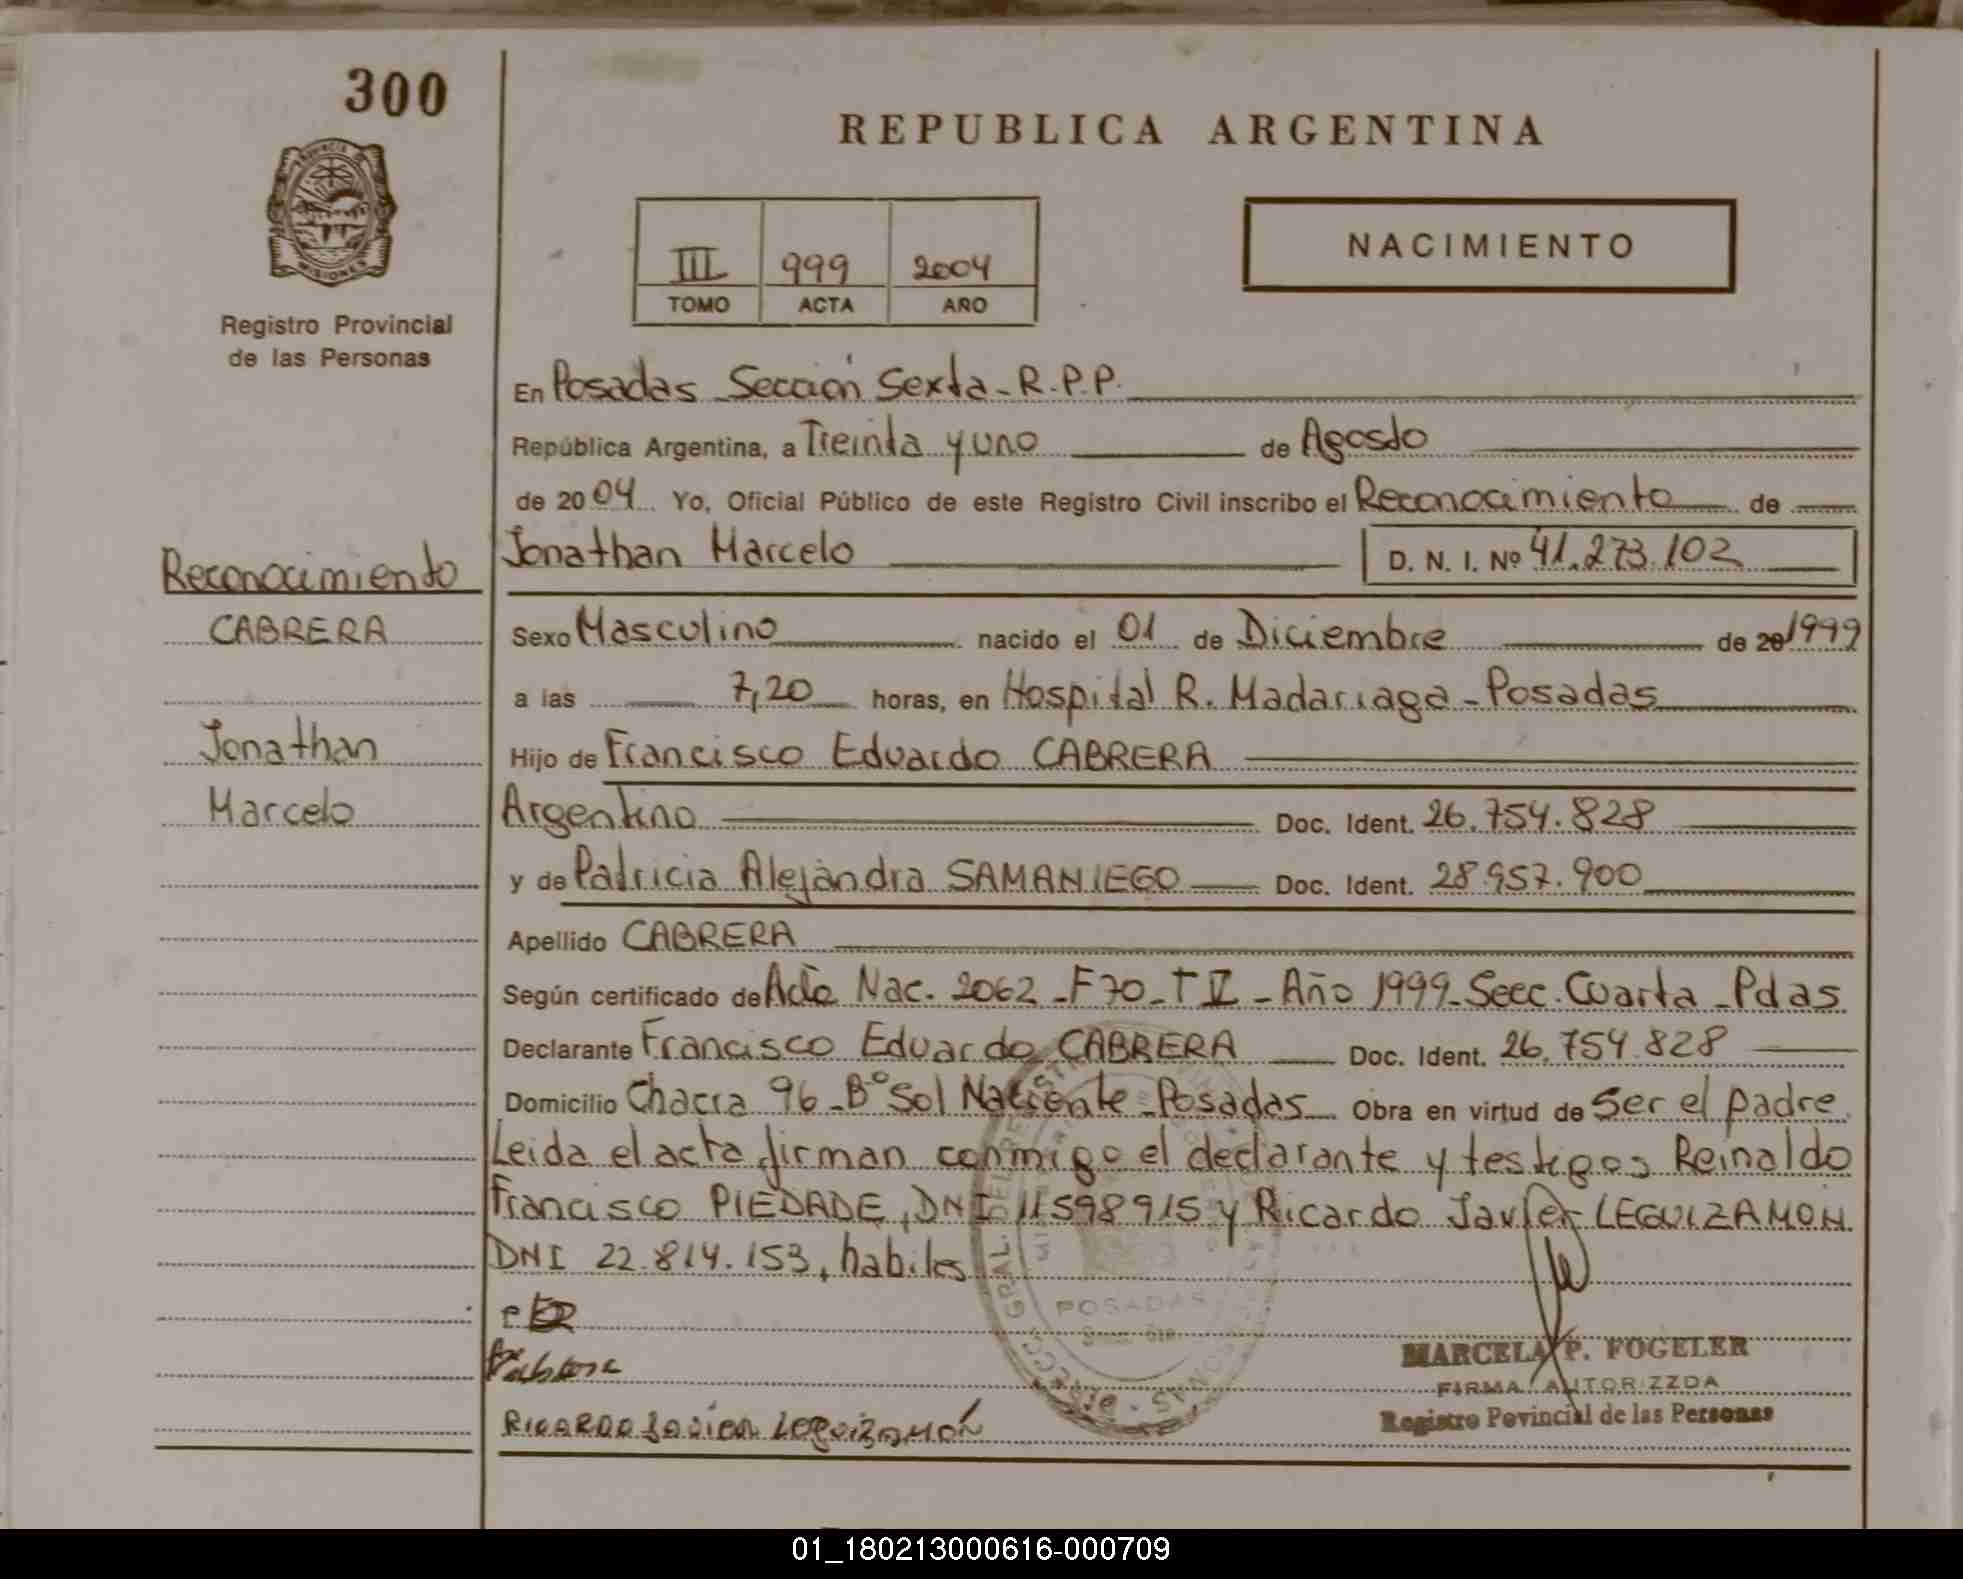 300
REPUBLICA ARGENTINA
PROVINCIA DE
MISIONES
Registro Provincial
de las Personas
III 999 2004
TOMO ACTA AÑO
NACIMIENTO
En Posadas - Sección Sexta - R.P.P.
República Argentina, a Treinta y uno de Agosto
de 2004 Yo, Oficial Público de este Registro Civil inscribo el Reconocimiento de
Jonathan Marcelo D. N. I. Nº 41.273.102
Reconocimiento
CABRERA
Jonathan
Marcelo
Sexo Masculino nacido el 01 de Diciembre de 20 1999
a las 7,20 horas, en Hospital R. Madariaga - Posadas
Hijo de Francisco Eduardo CABRERA
Argentino Doc. Ident. 26.754.828
y de Patricia Alejandra SAMANIEGO Doc. Ident. 28.957.900
Apellido CABRERA
Según certificado de Acta Nac. 2062 - F 70 - T II - Año 1999 - Secc. Cuarta - Pdas
Declarante Francisco Eduardo CABRERA Doc. Ident. 26.754.828
Domicilio Chacra 96 - Bº Sol Naciente - Posadas Obra en virtud de Ser el padre
Leida el acta firman conmigo el declarante y testigos Reinaldo
Francisco PIEDADE, DNI 11598915 y Ricardo Javier LEGUIZAMON
DNI 22.814.153, habiles
POSADAS
MARCELA P. FOGELER
FIRMA AUTORIZZDA
Registro Povincial de las Personas
RICARDO JAVIER LEGUIZAMÓN
01_180213000616-000709